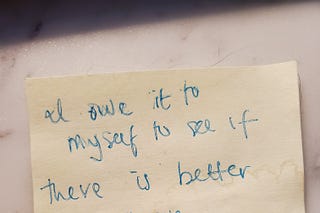 I owe it to
myself to see if
there is better